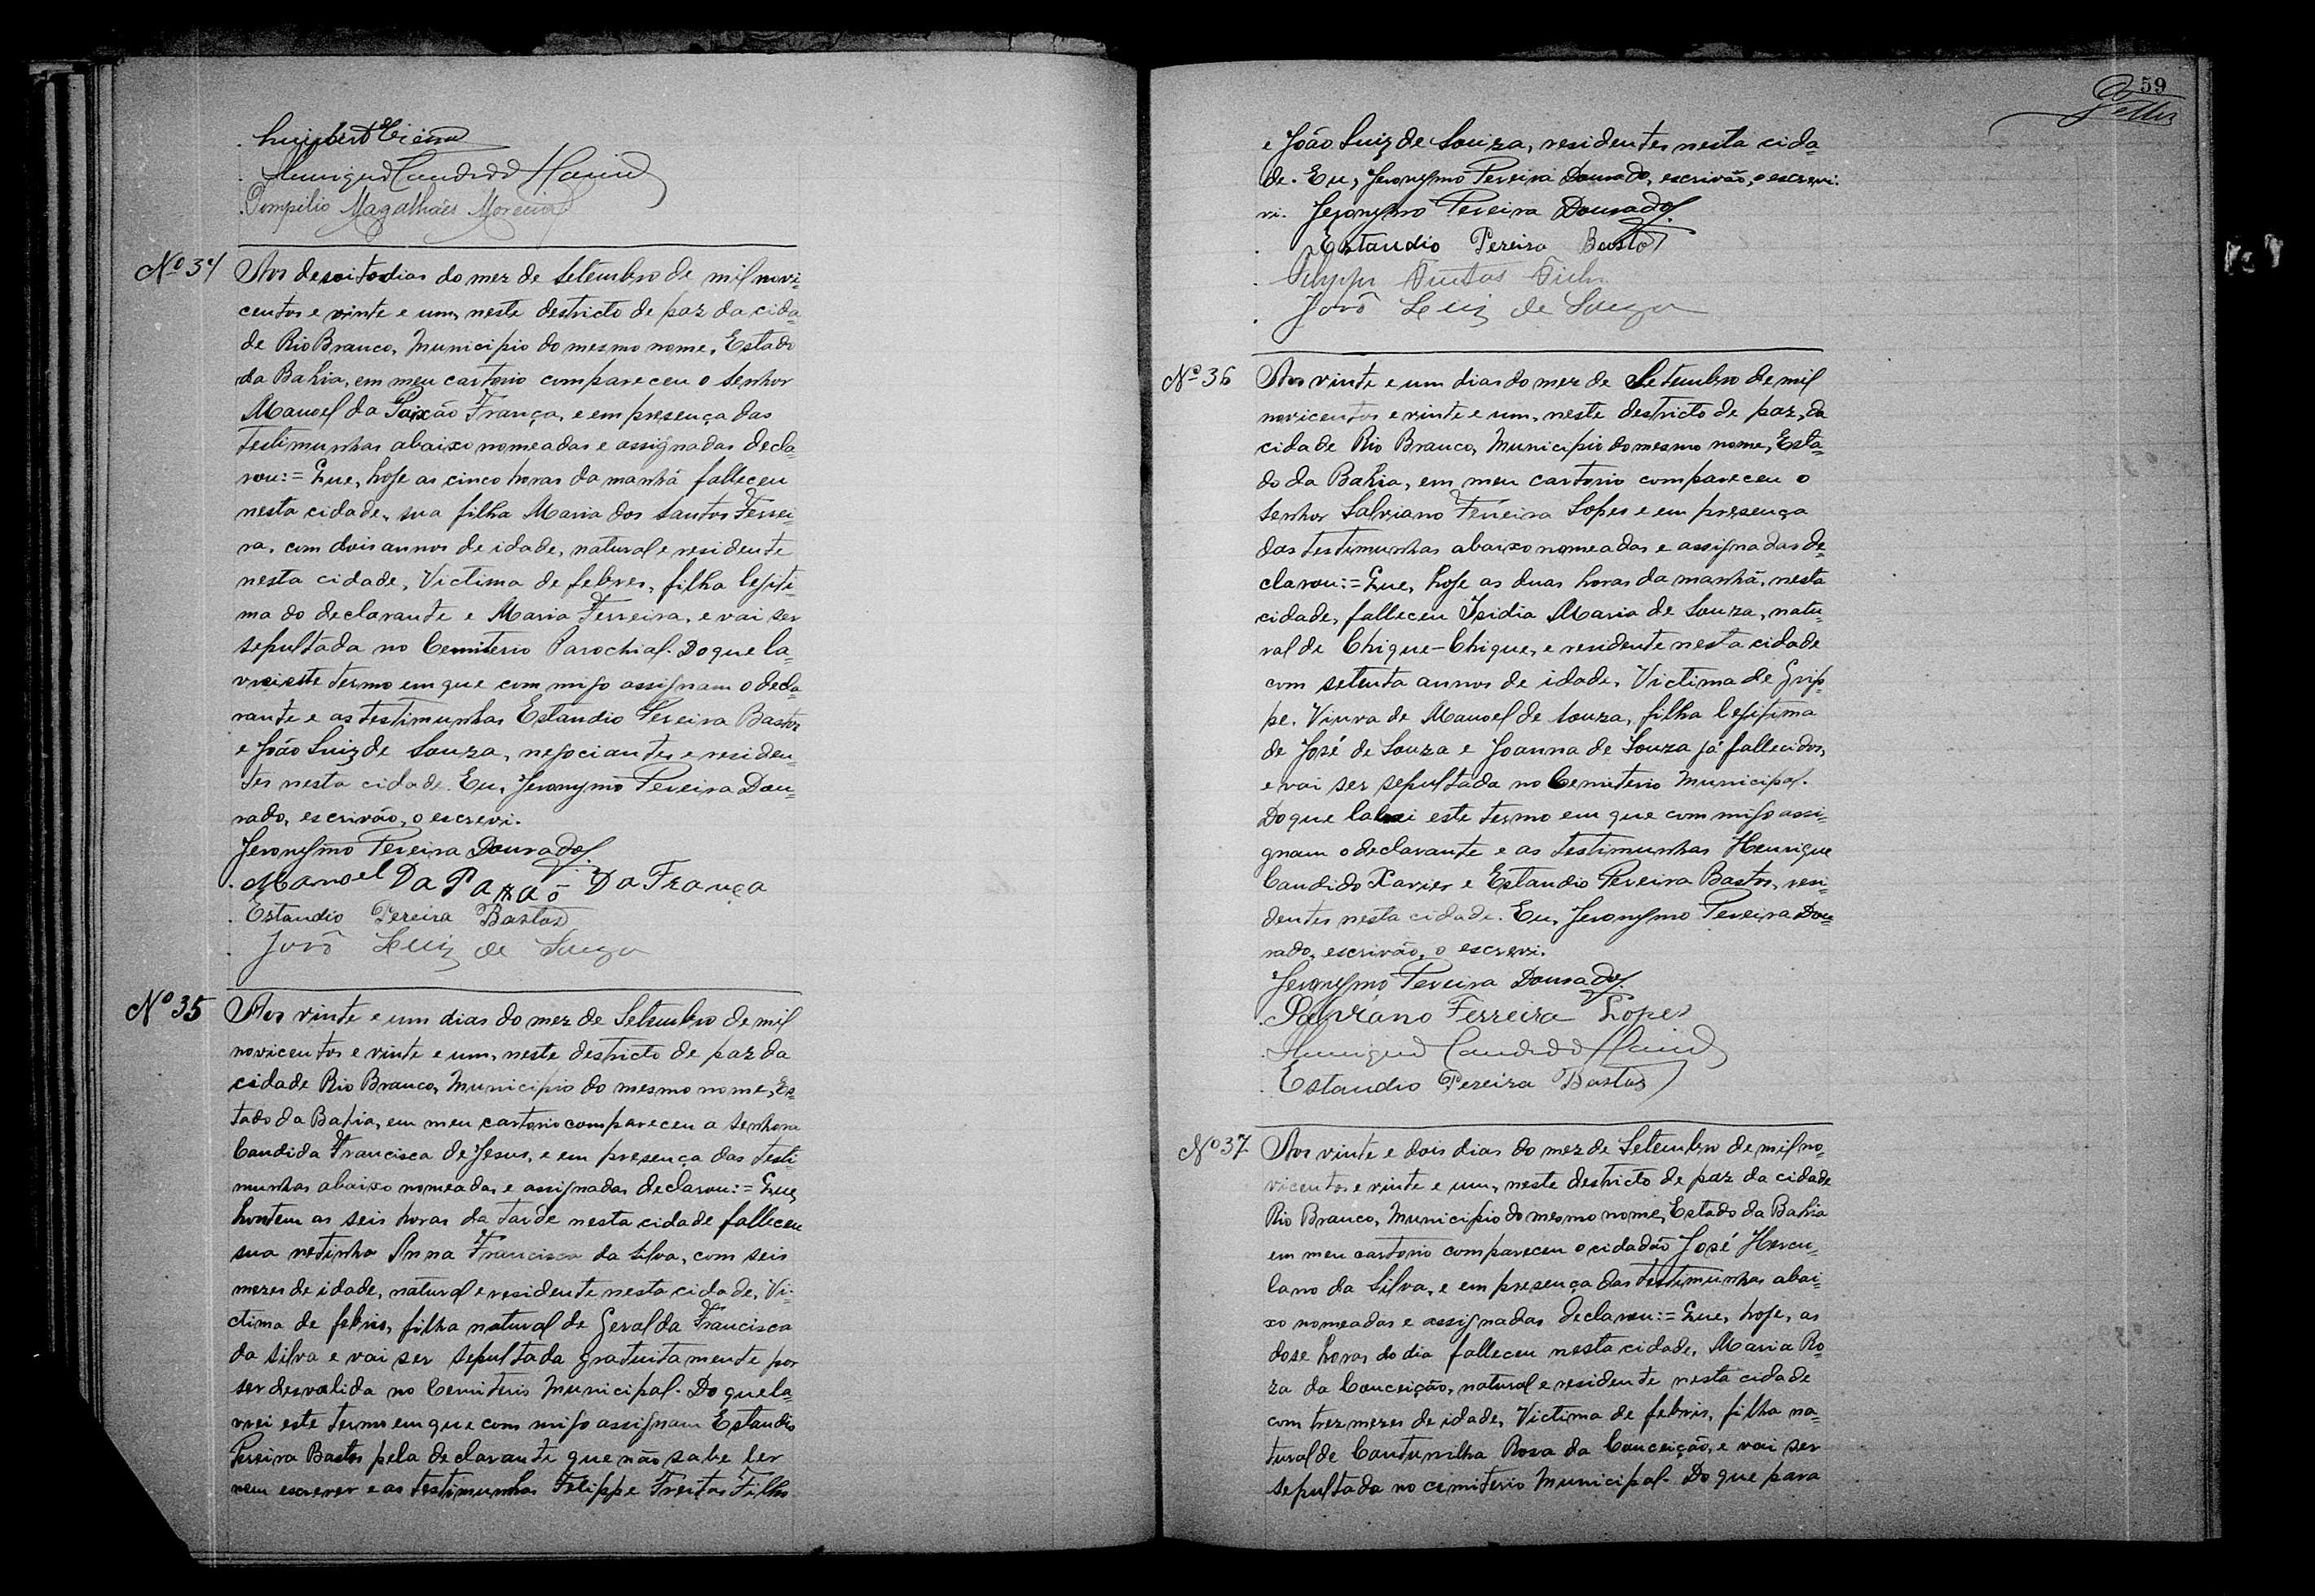 Henrique Candido Xavier
Pompilio Magalhães Moreira
Nº 34 Aos desoito dias do mez de Setembro de mil novi-
centos e vinte e um, neste destricto de paz da cida-
de Rio Branco, Municipio do mesmo nome, Estado
da Bahia, em meu cartorio compareceu o Senhor
Manoel da Paixão França, e em presença das
testimunhas abaixo nomeadas e assignadas decla-
rou:= Que, hoje as cinco horas da manhã falleceu
nesta cidade, sua filha Maria dos Santos Ferrei-
ra, com dois annos de idade, natural e residente
nesta cidade, Victima de febres, filha legiti-
ma do declarante e Maria Ferreira, e vai ser
sepultada no Cemiterio Parochial. Do que la-
vrei este termo em que com migo assignam o decla-
rante e as testimunhas Estandio Pereira Bastos
e João Luiz de Souza, negociantes e residen-
tes nesta cidade. Eu, Jeronymo Pereira Dou-
rado, escrivão, o escrevi.
Jeronymo Pereira Dourado.
Manoel Da Paxaõ Da França
Estandio Pereira Bastos
Joaõ Luiz de Souza
Nº 35 Aos vinte e um dias do mez de Setembro de mil
novicentos e vinte e um, neste destricto de paz da
cidade Rio Branco, Municipio do mesmo nome, Es-
tado da Bahia, em meu cartorio compareceu a senhora
Candida Francisca de Jesus, e em presença das testi-
munhas abaixo nomeadas e assignadas declarou:= Que,
hontem as seis horas da tarde nesta cidade falleceu
sua netinha Anna Francisca da Silva, com seis
mezes de idade, natural e residente nesta cidade, Vi-
ctima de febris, filha natural de Geralda Francisca
da Silva e vai ser sepultada gratuitamente por
ser desvalida no Cemiterio Municipal. Do que la-
vrei este termo em que com migo assignam Estandio
Pereira Bastos pela declarante que não sabe ler
nem escrever e as testimunhas Felippe Freitas Filho
59
e João Luiz de Souza, residentes nesta cida-
de. Eu, Jeronymo Pereira Dourado, escrivão, o escrevi.
vi. Jeronymo Pereira Dourado.
Estandio Pereira Bastos
Filho
Joaõ Luiz de Souza
Nº 36 Aos vinte e um dias do mez de Setembro de mil
novicentos e vinte e um, neste destricto de paz, da
cidade Rio Branco, Municipio do mesmo nome, Esta-
do da Bahia, em meu cartorio compareceu o
Senhor Salviano Ferreira Lopes e em presença
das testimunhas abaixo nomeadas e assignadas de-
clarou:= Que, hoje as duas horas da manhã, nesta
cidade, falleceu Isidia Maria de Souza, natu-
ral de Chique-Chique, e residente nesta cidade
com setenta annos de idade, Victima de Grip-
pe. Viuva de Manoel de Souza, filha legitima
de José de Souza e Joanna de Souza já fallecidos,
e vai ser sepultada no Cemiterio Municipal.
Do que lavrei este termo em que com migo assi-
gnam o declarante e as testimunhas Henrique
Candido Xavier e Estandio Pereira Bastos, resi-
dentes nesta cidade. Eu, Jeronymo Pereira Dou-
rado, escrivão, o escrevi.
Jeronymo Pereira Dourado.
Salviano Ferreira Lopes
Henrique Candido Xavier
Estandio Pereira Bastos
Nº 37 Aos vinte e dois dias do mez de Setembro de mil no-
vicentos e vinte e um, neste destricto de paz da cidade
Rio Branco, Municipio do mesmo nome, Estado da Bahia
em meu cartorio compareceu o cidadão José Hercu-
lano da Silva, e em presença das testimunhas abai-
xo nomeadas e assignadas declarou:= Que, hoje, as
dose horas do dia falleceu nesta cidade, Maria Ro-
za da Conceição, natural e residente nesta cidade
com trez mezes de idade, Victima de febris, filha na-
tural de Cantunilha Rosa da Conceição, e vai ser
sepultada no cemiterio Municipal. Do que para